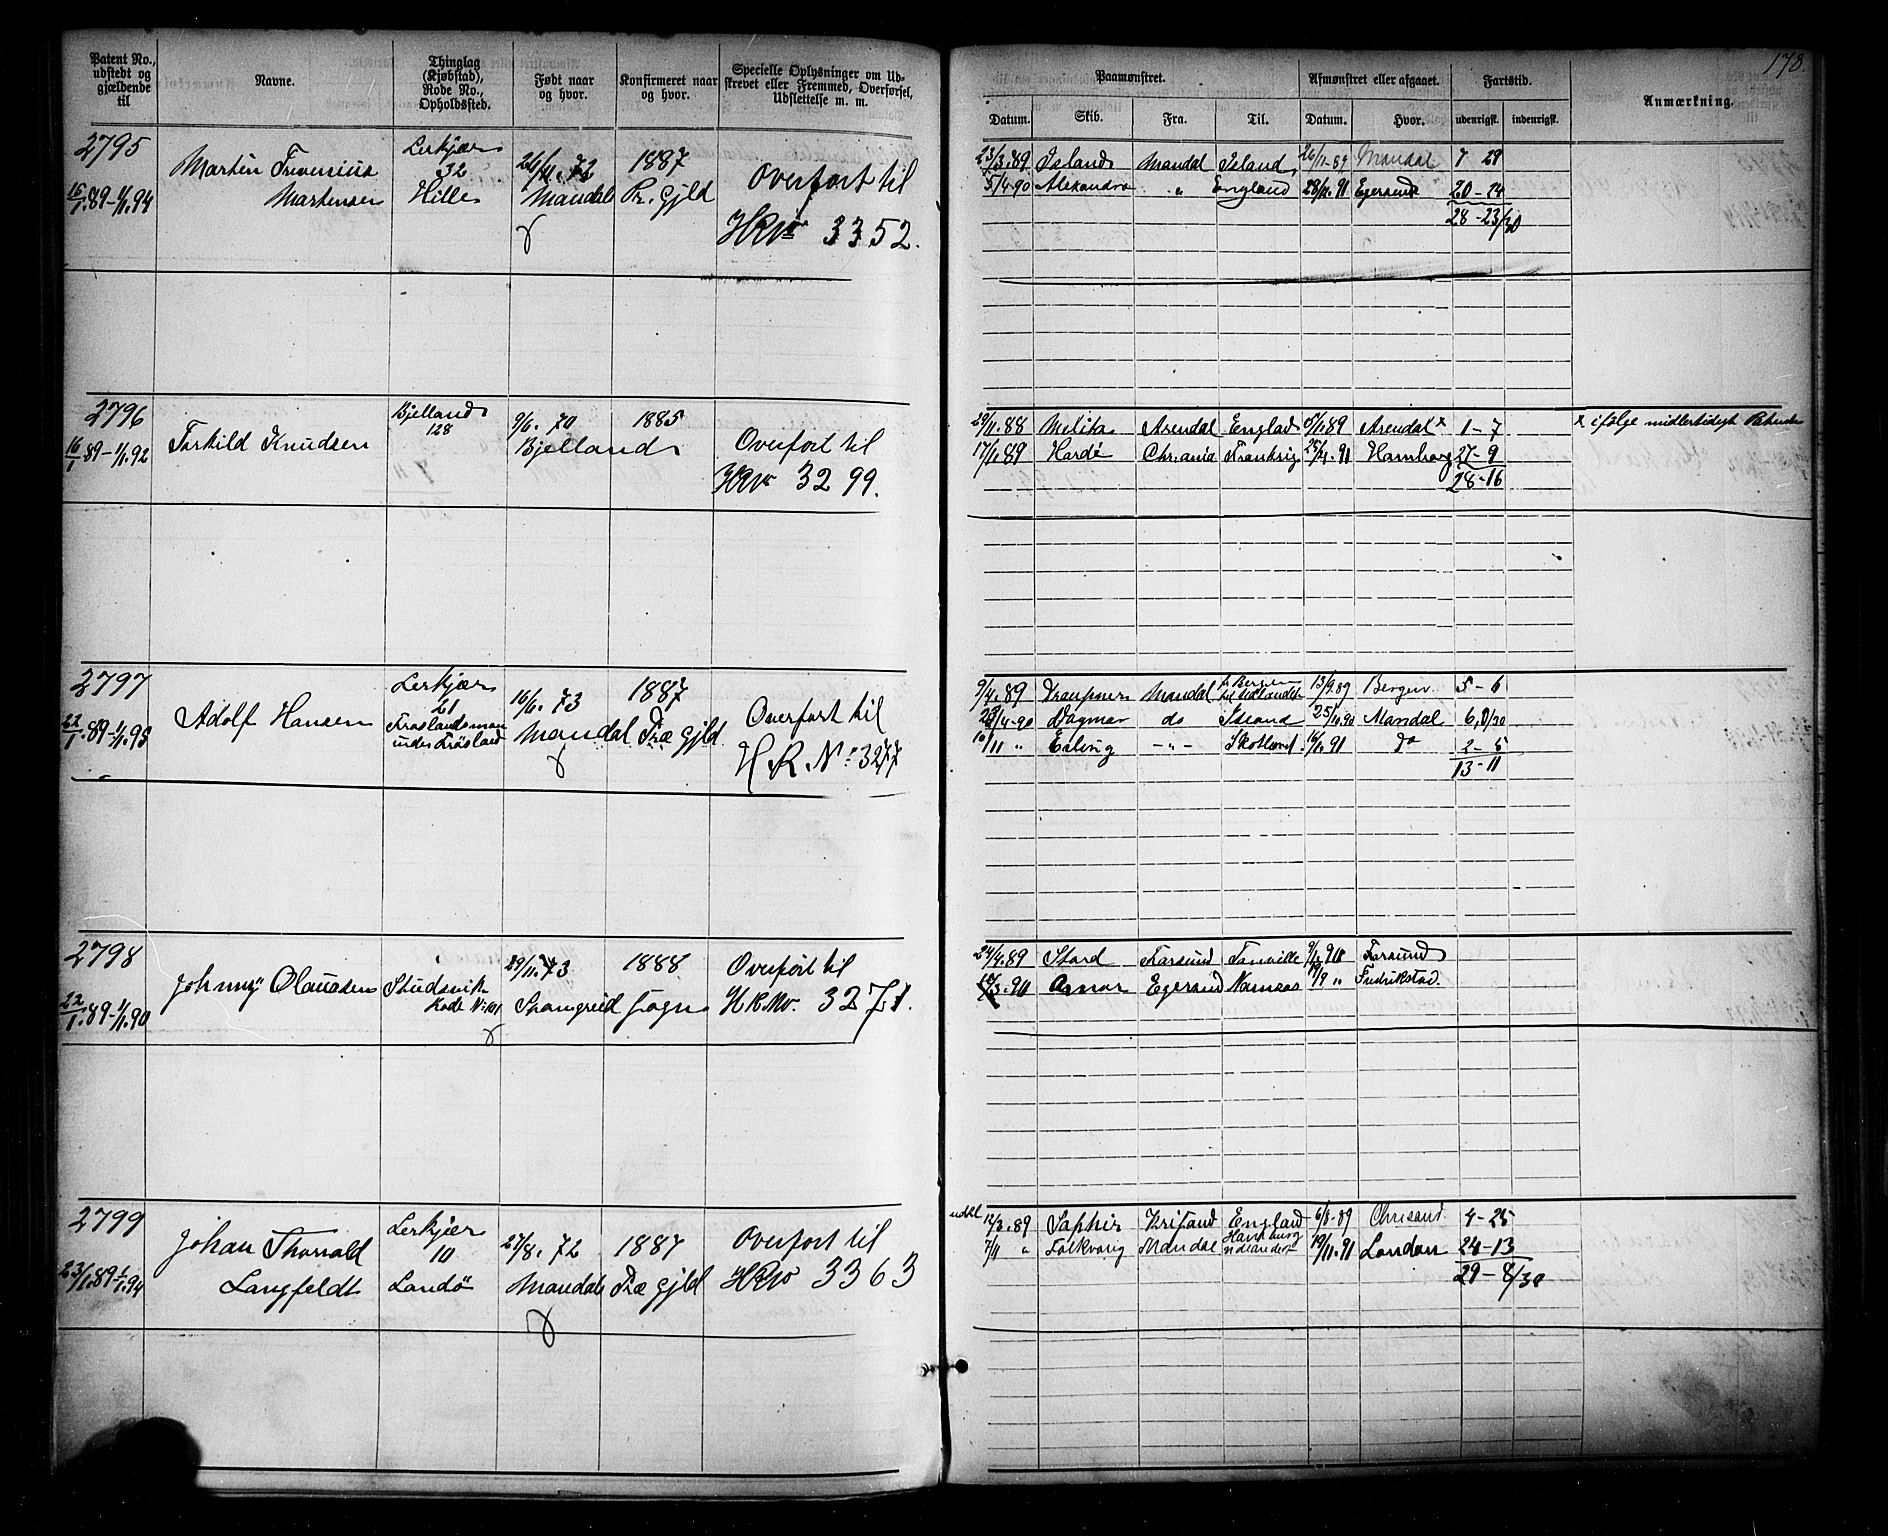 178.
Patent No., udstedt og gjældende til
Navne.
Thinglag (Kjøbstad), Rode No., Opholdssted.
Født naar og hvor.
Konfirmeret naar og hvor.
Specielle Oplysninger om Udskrevet eller Fremmed, Overførsel, Udslettelse m. m.
Paamønstret.
Afmønstret eller afgaaet.
Fartstid.
Anmærkning.
Datum. Skib. Fra. Til. Datum. Hvor. udenrigsk. indenrigsk.
2795
16/1.89-1/1.94
Martin
Martensen
Lerkjær
32
Hille
Mandal
1887
Pr. Gjld
Overført til
HRNo 3352.
23/3.89 Island Mandal Island 26/11.89 Mandal 7 29
5/4.90 Alexandra " England 28/11.91 Egersund 20-24
28-23/30
2796
16/1 89-1/1.92
Torkild Knudsen
Bjelland
128
9/6. 70
Bjelland
1885
Overført til
HRNo 3299.
29/11.88 Arendal England 5/1.89 Arendal x 1-7
x ifølge midlertidigt
17/1.89 Chr.ania 91 Hamborg 27-9
28-16
2797
22/1.89-1/1.95
Adolf Hansen
Lerkjær
21
16/6. 73
Mandal
1887
Præ Gjld.
Overført til
H.R.No: 3277
9/4.89 Draupner Mandal 13/9.89 Bergen 5-6
4.90 Dagmar do Island 25/11.90 Mandal
10/11 " Erling -"- Skotland 16/1.91 Do 2-5
13-11
2798
22/1.89-1/1.90
Johnny Olausen
Rode No: 101
29/11.73
1888
Sogn
Overført til
H.R.No. 3271.
24/4.89 Stord Farsund Farsund
90 Egersund Fredrikstad.
2799
23/1.89-1/1.94
Johan Thorvald
Langfeldt
Lerkjær
10
Landö
27/8. 72
Mandal
1887
Præ Gjld
Overført til
HRNo 3363
12/3.89 Saphir Krisand England 6/8.89 Chrisand. 4-25
7/11 " Folkvang Mandal Hamburg 19/11.91 London 24-13
29-8/30